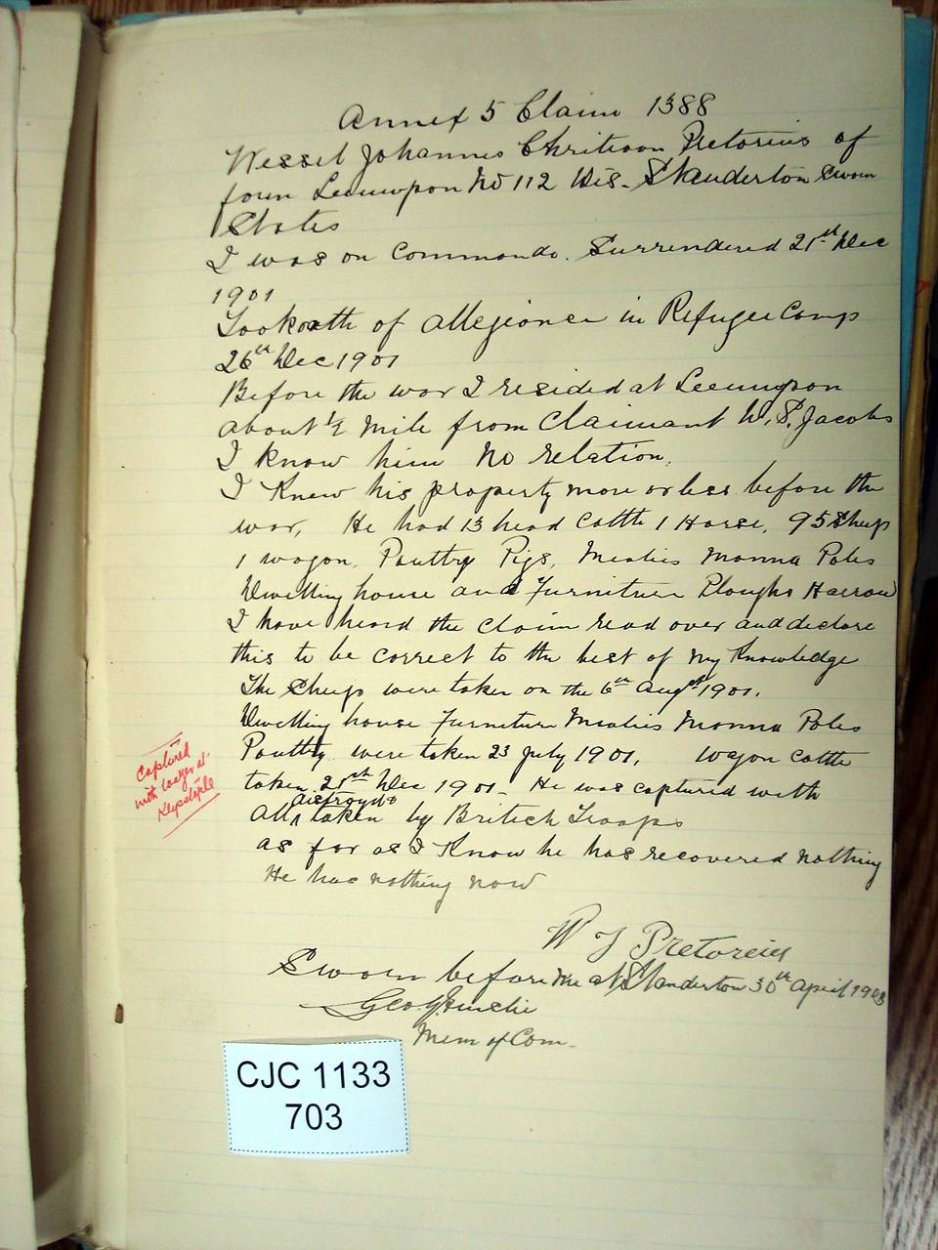 Annex 5 Claim 1388
Wessel Johannes Chritioon Pretorius of
farm Leeuwpon No 112 Dis. Standerton sworn
States
I was on Commando. Surrendered 21st Dec
1901
Took oath of allegiance in Refugee Camp
26th Dec 1901
Before the war I resided at Leeuwpon
about ½ mile from Claimant W. P. Jacobs
I know him No relation.
I Knew his property more or less before the
war, He had 13 head Cattle 1 Horse, 95 Sheep
1 wagon, Poultry Pigs, Mealies Manna Poles
Dwelling house and Furniture Ploughs Harrow
I have heard the Claim read over and declare
this to be correct to the best of my Knowledge
The Sheep were taken on the 6th Augst 1901.
Dwelling house Furniture Mealies Manna Poles
Poultry were taken 23 July 1901, wagon cattle
taken 21st Dec 1901 - He was captured with
destroyed or
All taken by British Troops
as far as I Know he has recovered nothing
He has nothing now
captured
with laager at
W J Pretorius
Sworn before me at Standerton 30th April 1903
Geo
Mem of Com.
CJC 1133
703